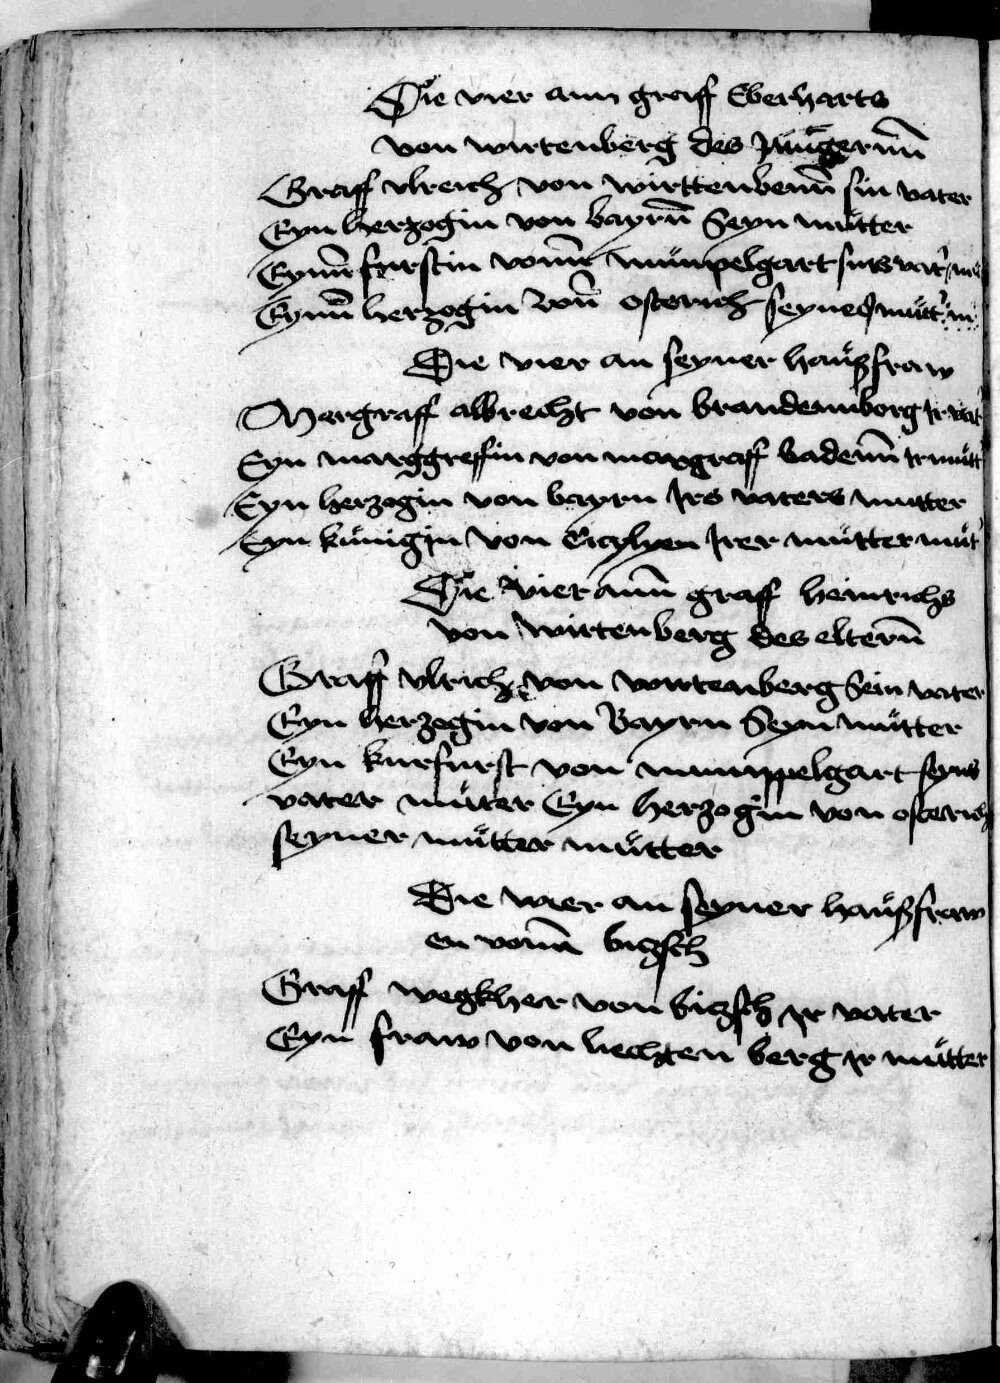 Die vier ann graff Eberharts
von wirtenberg des Jüngernn
Graff vlreich von wirttenbenn sin vater
Eyn herzogin von bayrn Seyn mütter
Eynn fürstin vonn münpelgart sins vat̓
Eynn herzogin vonn osterich seyner mütt̓
Die vier an seyner haüßfraw
Margraff albrecht von brandennborg Ir vat̓
Eyn marggreffin von margraff badenn Ir mütt̓
Eyn herzogin von bayrn Irs vaters mutter
Eyn künigin von Cicylyen Irer mütter müt̓
Die vier ann graff heinrichs
von wirtenberg des elternn
Graff vlrich von wirtenberg Sein vater
Eyn herzogin von Bayrn Seyn mütter
Eyn kurfurst von mümppelgart seyns
vater müter Eyn herzogin von osterich
seyner mütter mütter
Die vier an seyner haüßfraw
en vonn bitzsch
Graff wegkher von bitzsch Ir vater
Eyn fraw von liechten berg Ir mütter